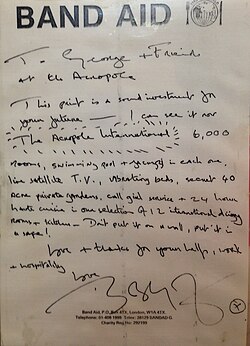 BAND AID
To George + Friends
at the Acropole
This print is a sound investment for
your future — I can see it now
"The Acropole International" 6,000
rooms, swimming pool + jacuzzi in each one,
live satellite T.V., vibrating beds, secret 40
acre private gardens, call girl service + 24 hour
haute cuisine in our selection of 12 international dining
rooms + kitchen — Don't put it on a wall, put it in
a safe!
Love + thanks for your help, work
+ hospitality
Love
Band Aid, P.O. Box 4TX, London, W1A 4TX.
Telephone: 01-408 1999. Telex: 28129 BANDAD G.
Charity Reg No: 292199